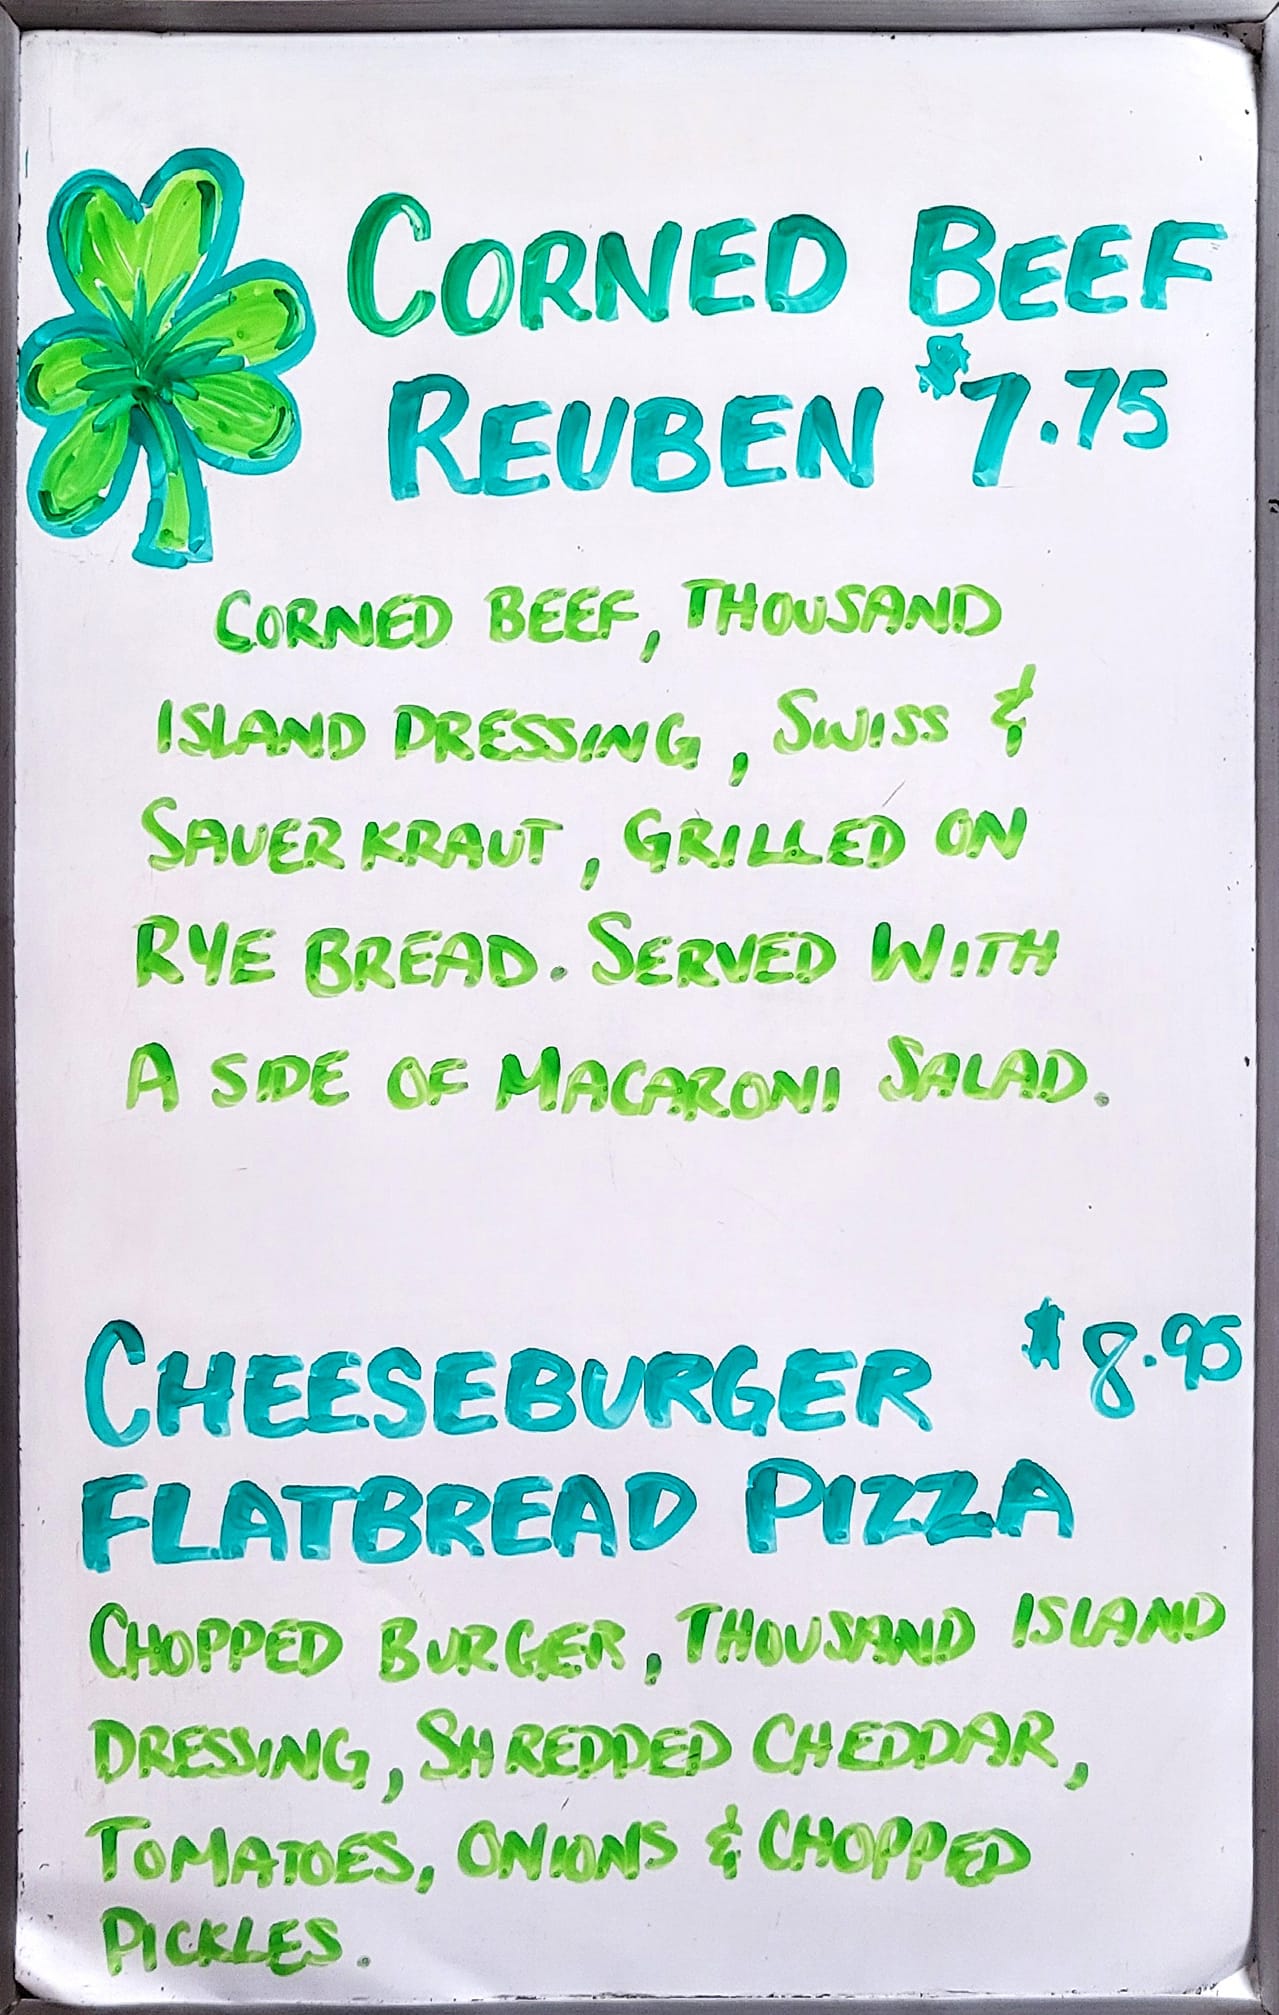 CORNED BEEF
REUBEN $7.75
CORNED BEEF, THOUSAND
ISLAND DRESSING, SWISS &
SAUERKRAUT, GRILLED ON
RYE BREAD. SERVED WITH
A SIDE OF MACARONI SALAD.
CHEESEBURGER $8.95
FLATBREAD PIZZA
CHOPPED BURGER, THOUSAND ISLAND
DRESSING, SHREDDED CHEDDAR,
TOMATOES, ONIONS & CHOPPED
PICKLES.